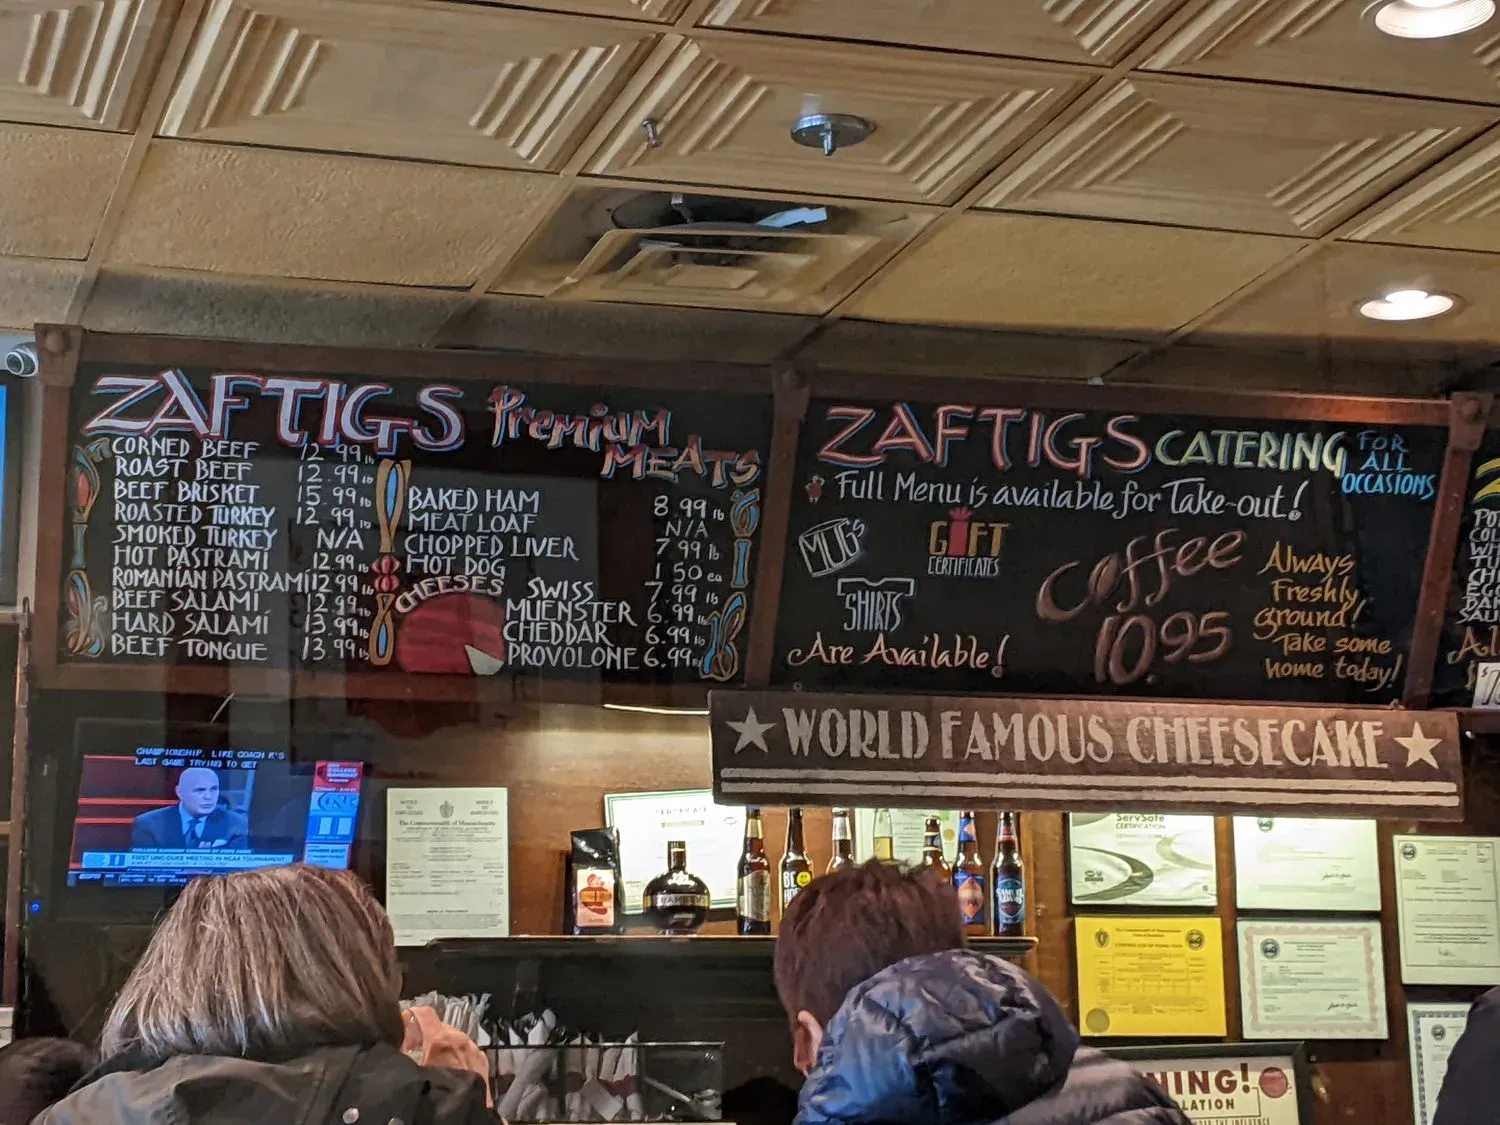 ZAFTIGS Premium MEATS
CORNED BEEF 12.99 lb
ROAST BEEF 12.99 lb
BEEF BRISKET 15.99 lb
ROASTED TURKEY 12.99 lb
SMOKED TURKEY N/A
HOT PASTRAMI 12.99 lb
ROMANIAN PASTRAMI 12.99 lb
BEEF SALAMI 12.99 lb
HARD SALAMI 13.99 lb
BEEF TONGUE 13.99 lb
BAKED HAM 8.99 lb
MEAT LOAF N/A
CHOPPED LIVER 7.99 lb
HOT DOG 1.50 ea
CHEESES
SWISS 7.99 lb
MUENSTER 6.99 lb
CHEDDAR 6.99 lb
PROVOLONE 6.99 lb
ZAFTIGS CATERING FOR ALL OCCASIONS
Full Menu is available for Take-out!
MUG's
GIFT
CERTIFICATES
SHIRTS
Are Available!
Coffee
10.95
Always
Freshly
ground!
Take some
home today!
WORLD FAMOUS CHEESECAKE
CHAMPIONSHIP, LIKE COACH K'S
LAST GAME TRYING TO GET
FIRST UNC-DUKE MEETING IN NCAA TOURNAMENT
ESPN
The Commonwealth of Massachusetts
CERTIFICATE
ServSafe
CERTIFICATION
NING!